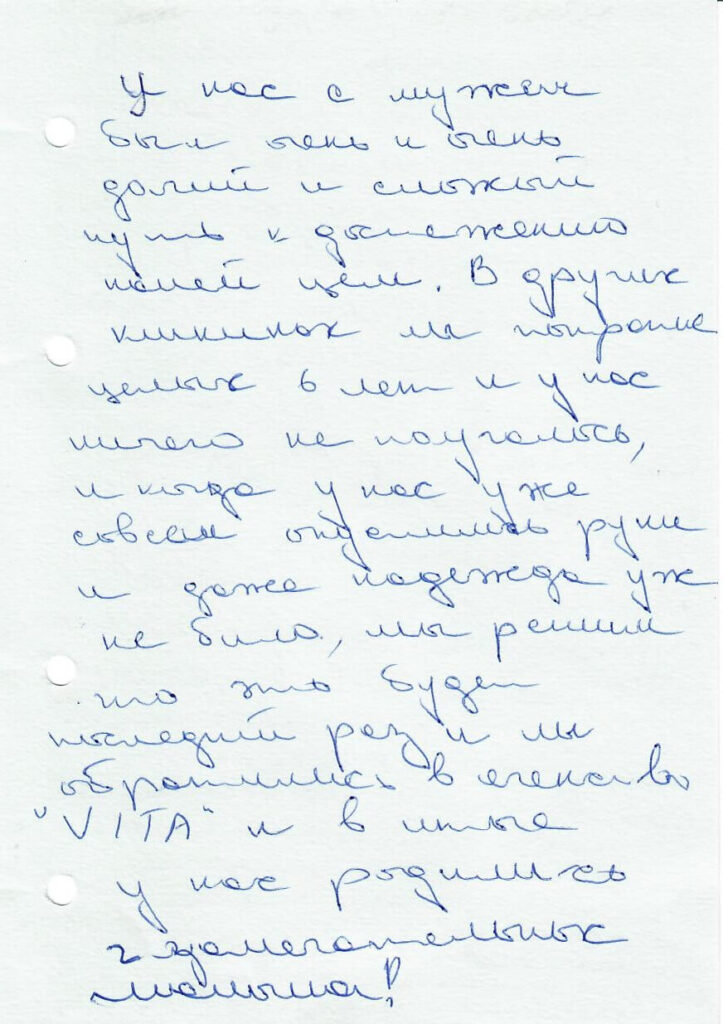 У нас с мужем
был очень и очень
долгий и сложый
путь к достежению
нашей цели. В других
клиниках мы потратили
целых 6 лет и у нас
ничего не получалось,
и когда у нас уже
совсем опустились руки
и даже надежда уж
не било, мы решили
что это будет
последний раз и мы
обратились в агенство
"VITA" и в итоге
у нас родились
2 замечательных
малыша!